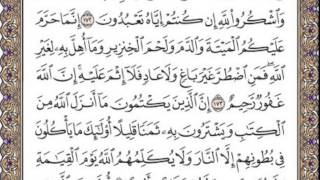 وَٱشْكُرُوا۟ لِلَّهِ إِن كُنتُمْ إِيَّاهُ تَعْبُدُونَ ١٧٢ إِنَّمَا حَرَّمَ
عَلَيْكُمُ ٱلْمَيْتَةَ وَٱلدَّمَ وَلَحْمَ ٱلْخِنزِيرِ وَمَآ أُهِلَّ بِهِۦ لِغَيْرِ
ٱللَّهِ فَمَنِ ٱضْطُرَّ غَيْرَ بَاغٍ وَلَا عَادٍ فَلَآ إِثْمَ عَلَيْهِ إِنَّ ٱللَّهَ
غَفُورٌ رَّحِيمٌ ١٧٣ إِنَّ ٱلَّذِينَ يَكْتُمُونَ مَآ أَنزَلَ ٱللَّهُ مِنَ
ٱلْكِتَٰبِ وَيَشْتَرُونَ بِهِۦ ثَمَنًا قَلِيلًا أُو۟لَٰٓئِكَ مَا يَأْكُلُونَ
فِى بُطُونِهِمْ إِلَّا ٱلنَّارَ وَلَا يُكَلِّمُهُمُ ٱللَّهُ يَوْمَ ٱلْقِيَٰمَةِ